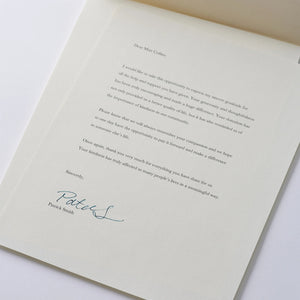 Dear Miss Collins,
I would like to take this opportunity to express my sincere gratitude for
all the help and support you have given. Your generosity and thoughtfulness
have been truly encouraging and made a huge difference. Your donation has
not only provided us a better quality of life, but it has also reminded us of
the importance of kindness in our community.
Please know that we will always remember your compassion and we hope
to one day have the opportunity to pay it forward and make a difference
in someone else's life.
Once again, thank you very much for everything you have done for us.
Your kindness has truly affected so many people's lives in a meaningful way.
Sincerely,
Patrick Smith